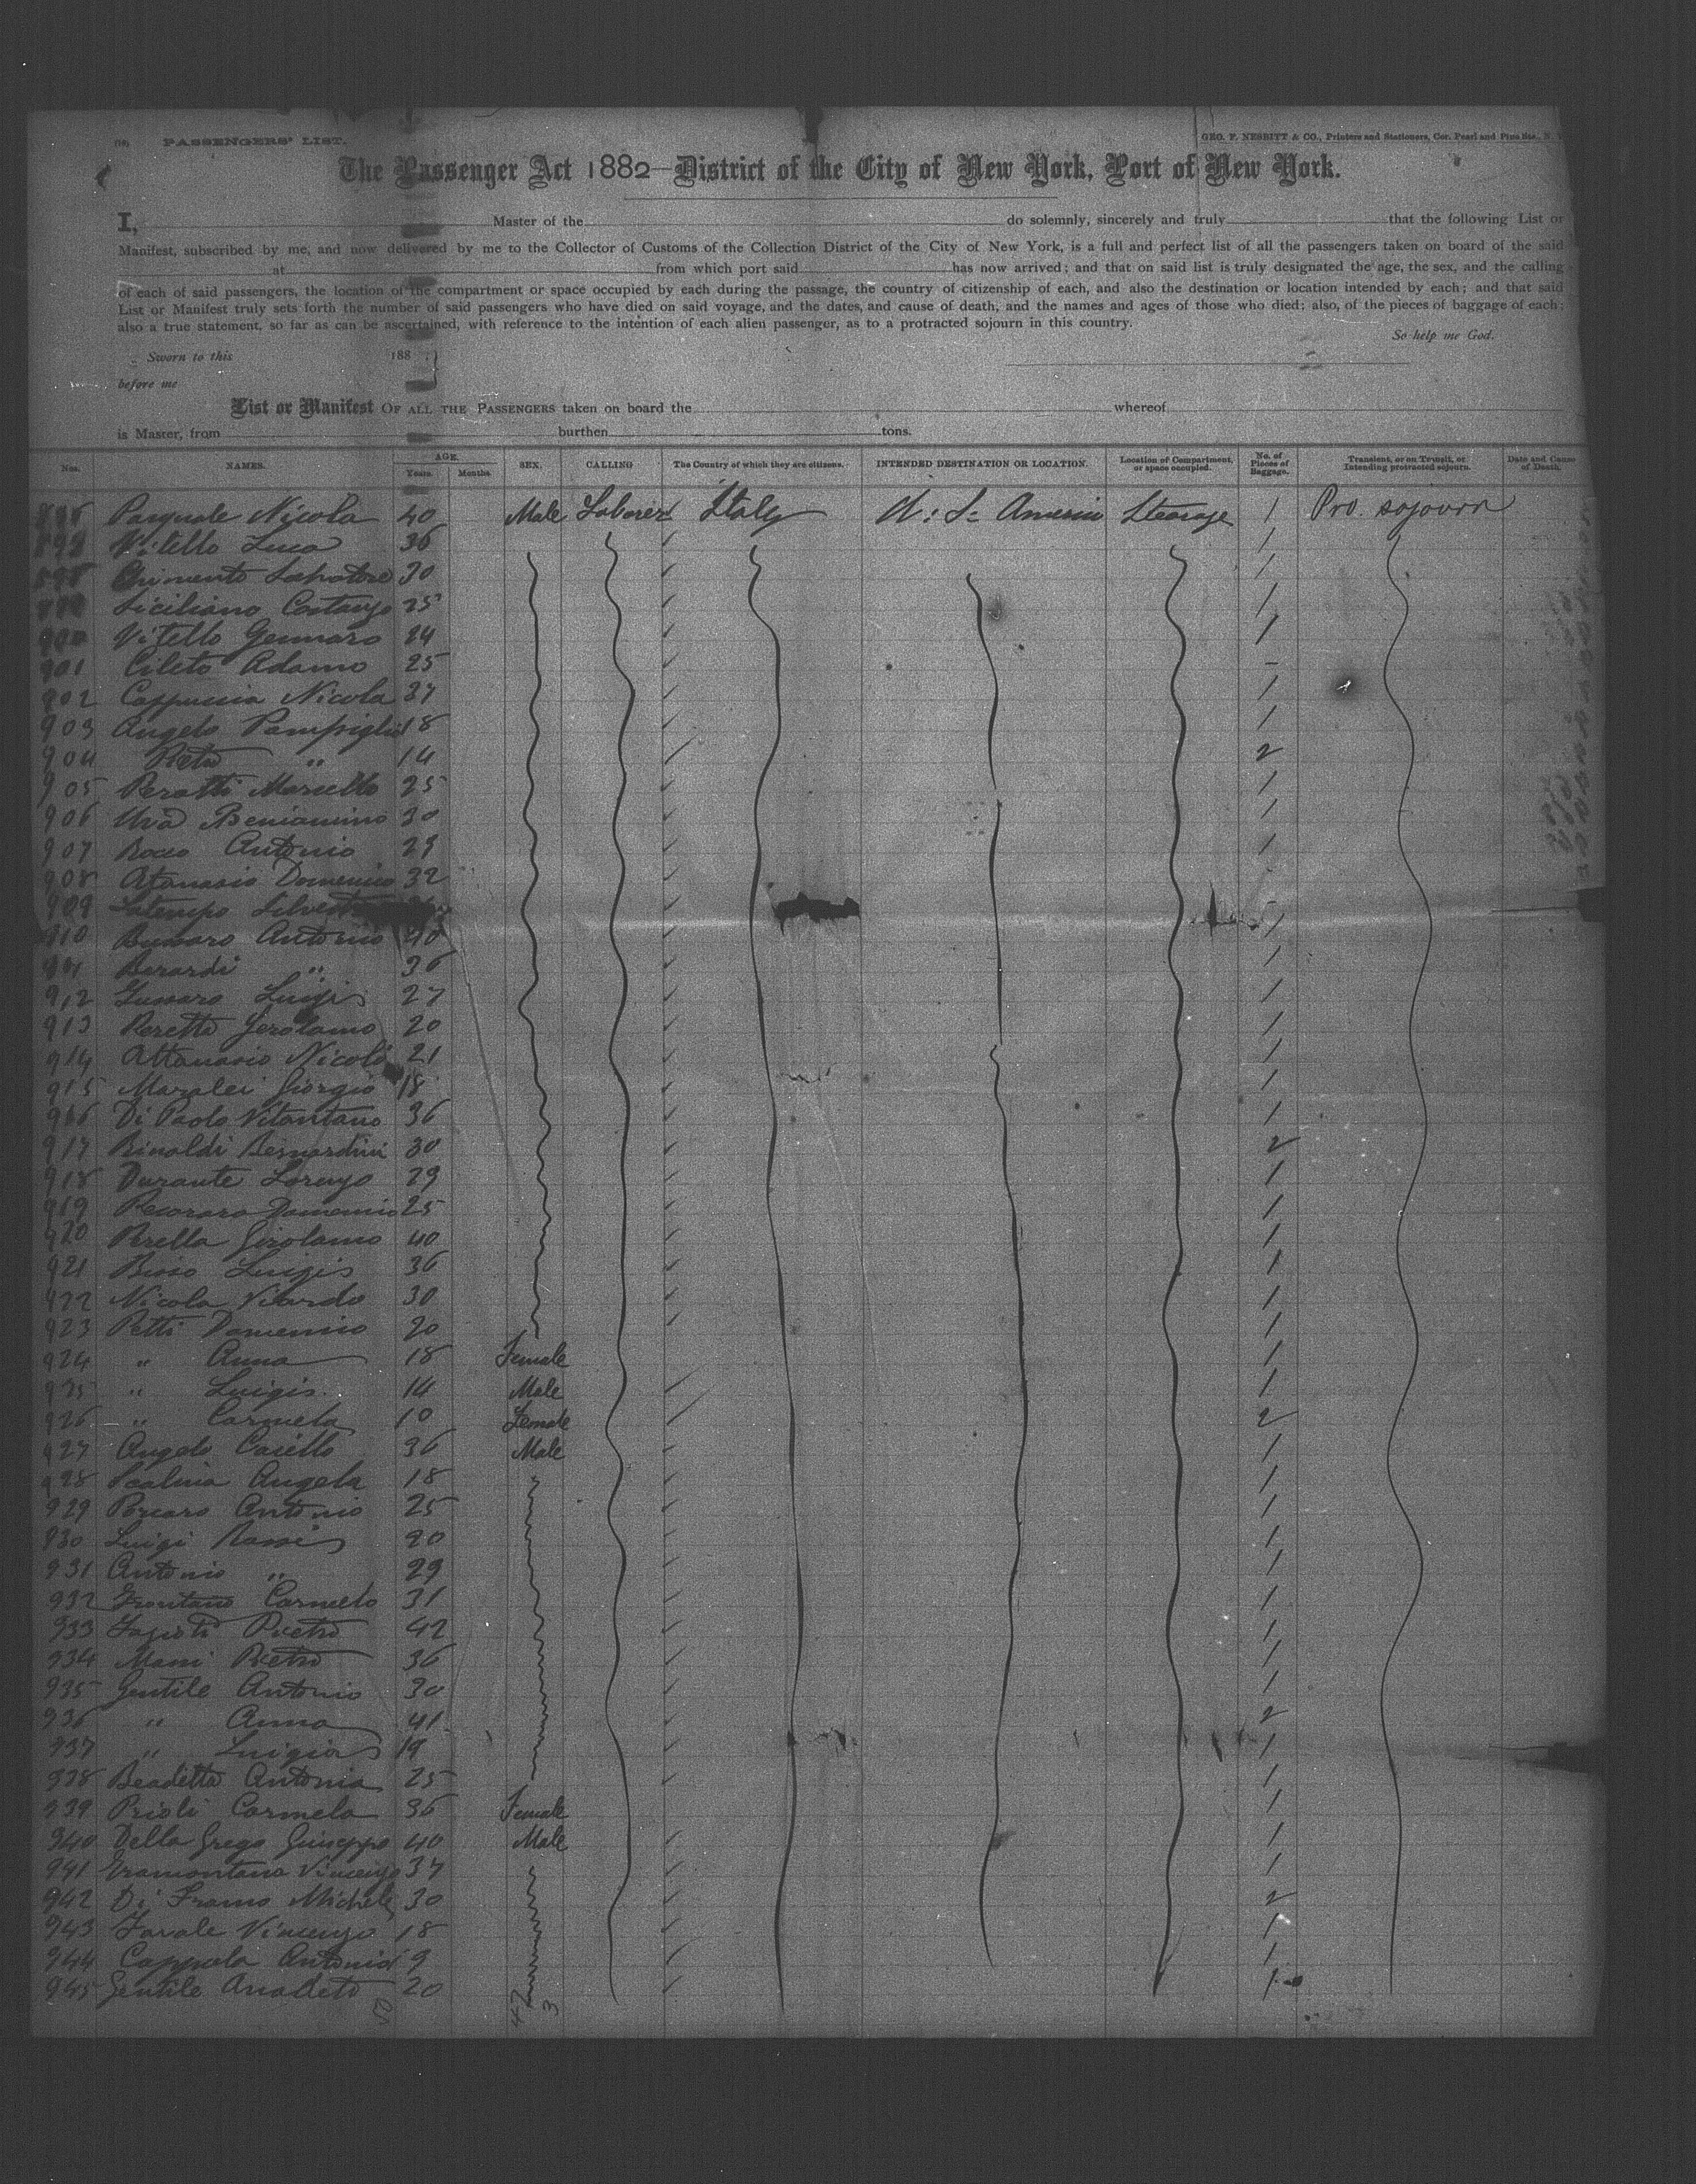 PASSENGERS' LIST.
GEO. F. NESBITT & CO., Printers and Stationers, Cor. Pearl and Pine Sts., N. Y.
The Passenger Act 1882—District of the City of New York, Port of New York.
I, Master of the do solemnly, sincerely and truly that the following List or
Manifest, subscribed by me, and now delivered by me to the Collector of Customs of the Collection District of the City of New York, is a full and perfect list of all the passengers taken on board of the said
at from which port said has now arrived; and that on said list is truly designated the age, the sex, and the calling
of each of said passengers, the location of the compartment or space occupied by each during the passage, the country of citizenship of each, and also the destination or location intended by each; and that said
List or Manifest truly sets forth the number of said passengers who have died on said voyage, and the dates, and cause of death, and the names and ages of those who died; also, of the pieces of baggage of each;
also a true statement, so far as can be ascertained, with reference to the intention of each alien passenger, as to a protracted sojourn in this country.
So help me God.
Sworn to this 188
before me
List or Manifest OF ALL THE PASSENGERS taken on board the whereof
is Master, from burthen tons.
Nos. NAMES. AGE. Years. Months. SEX. CALLING The Country of which they are citizens. INTENDED DESTINATION OR LOCATION. Location of Compartment, or space occupied. No. of Pieces of Baggage. Transient, or on Transit, or Intending protracted sojourn. Date and Cause of Death.
Pasquale Nicola 40 Male Laborer Italy U: S= America Steerage 1 Pro. sojourn
Vitello Luca 36 1
Chimento Salvatore 30 1
Siciliano Costanzo 25 1
900 Vitello Gennaro 24 1
901 Cileto Adamo 25 -
902 Cappuccia Nicola 37 1
903 Angelo Pampiglio 18 1
904 Pietro " 14 2
905 Peratti Marsello 25 1
906 Uva Beniamino 30 1
907 Rocco Antonio 29 1
908 Atanasio Domenico 32 1
909 1
910 Bussaro Antonio 40 1
911 Berardi " 36 1
912 Gussaro Luigi 27 1
913 Peretta Gerolamo 20 1
914 Attanasio Nicola 21 1
915 Maralei Giorgio 18 1
916 Di Paolo Vitantano 36 1
917 Rinaldi Bernardini 30 2
918 Durante Lorenzo 29 1
919 Pecoraro Domenico 25 1
920 Perella Girolamo 40 1
921 Luigi 36 1
922 Nicola Vitardo 30 1
923 Petti Domenico 20 1
924 " Anna 18 Female 1
925 " Luigi 14 Male 1
926 " Carmela 10 Female 2
927 Angelo Casello 36 Male 1
928 Scalma Angela 18 1
929 Porcaro Antonio 25 1
930 Luigi Rassi 20 1
931 Antonio " 29 1
932 Frontano Carmelo 31 1
933 Pietro 42 1
934 Massi Pietro 36 1
935 Gentile Antonio 30 1
936 " Anna 41 2
937 " Luigia 19 1
938 Beadetta Antonia 25 1
939 Prioli Carmela 36 Female 1
940 Della Grego Giuseppe 40 Male 1
941 Tramontana Vincenzo 37 1
942 Di Framo Michele 30 2
943 Favale Vincenzo 18 1
944 Cappola Antonio 19 1
945 Gentile Anadeto 20 1
47
3